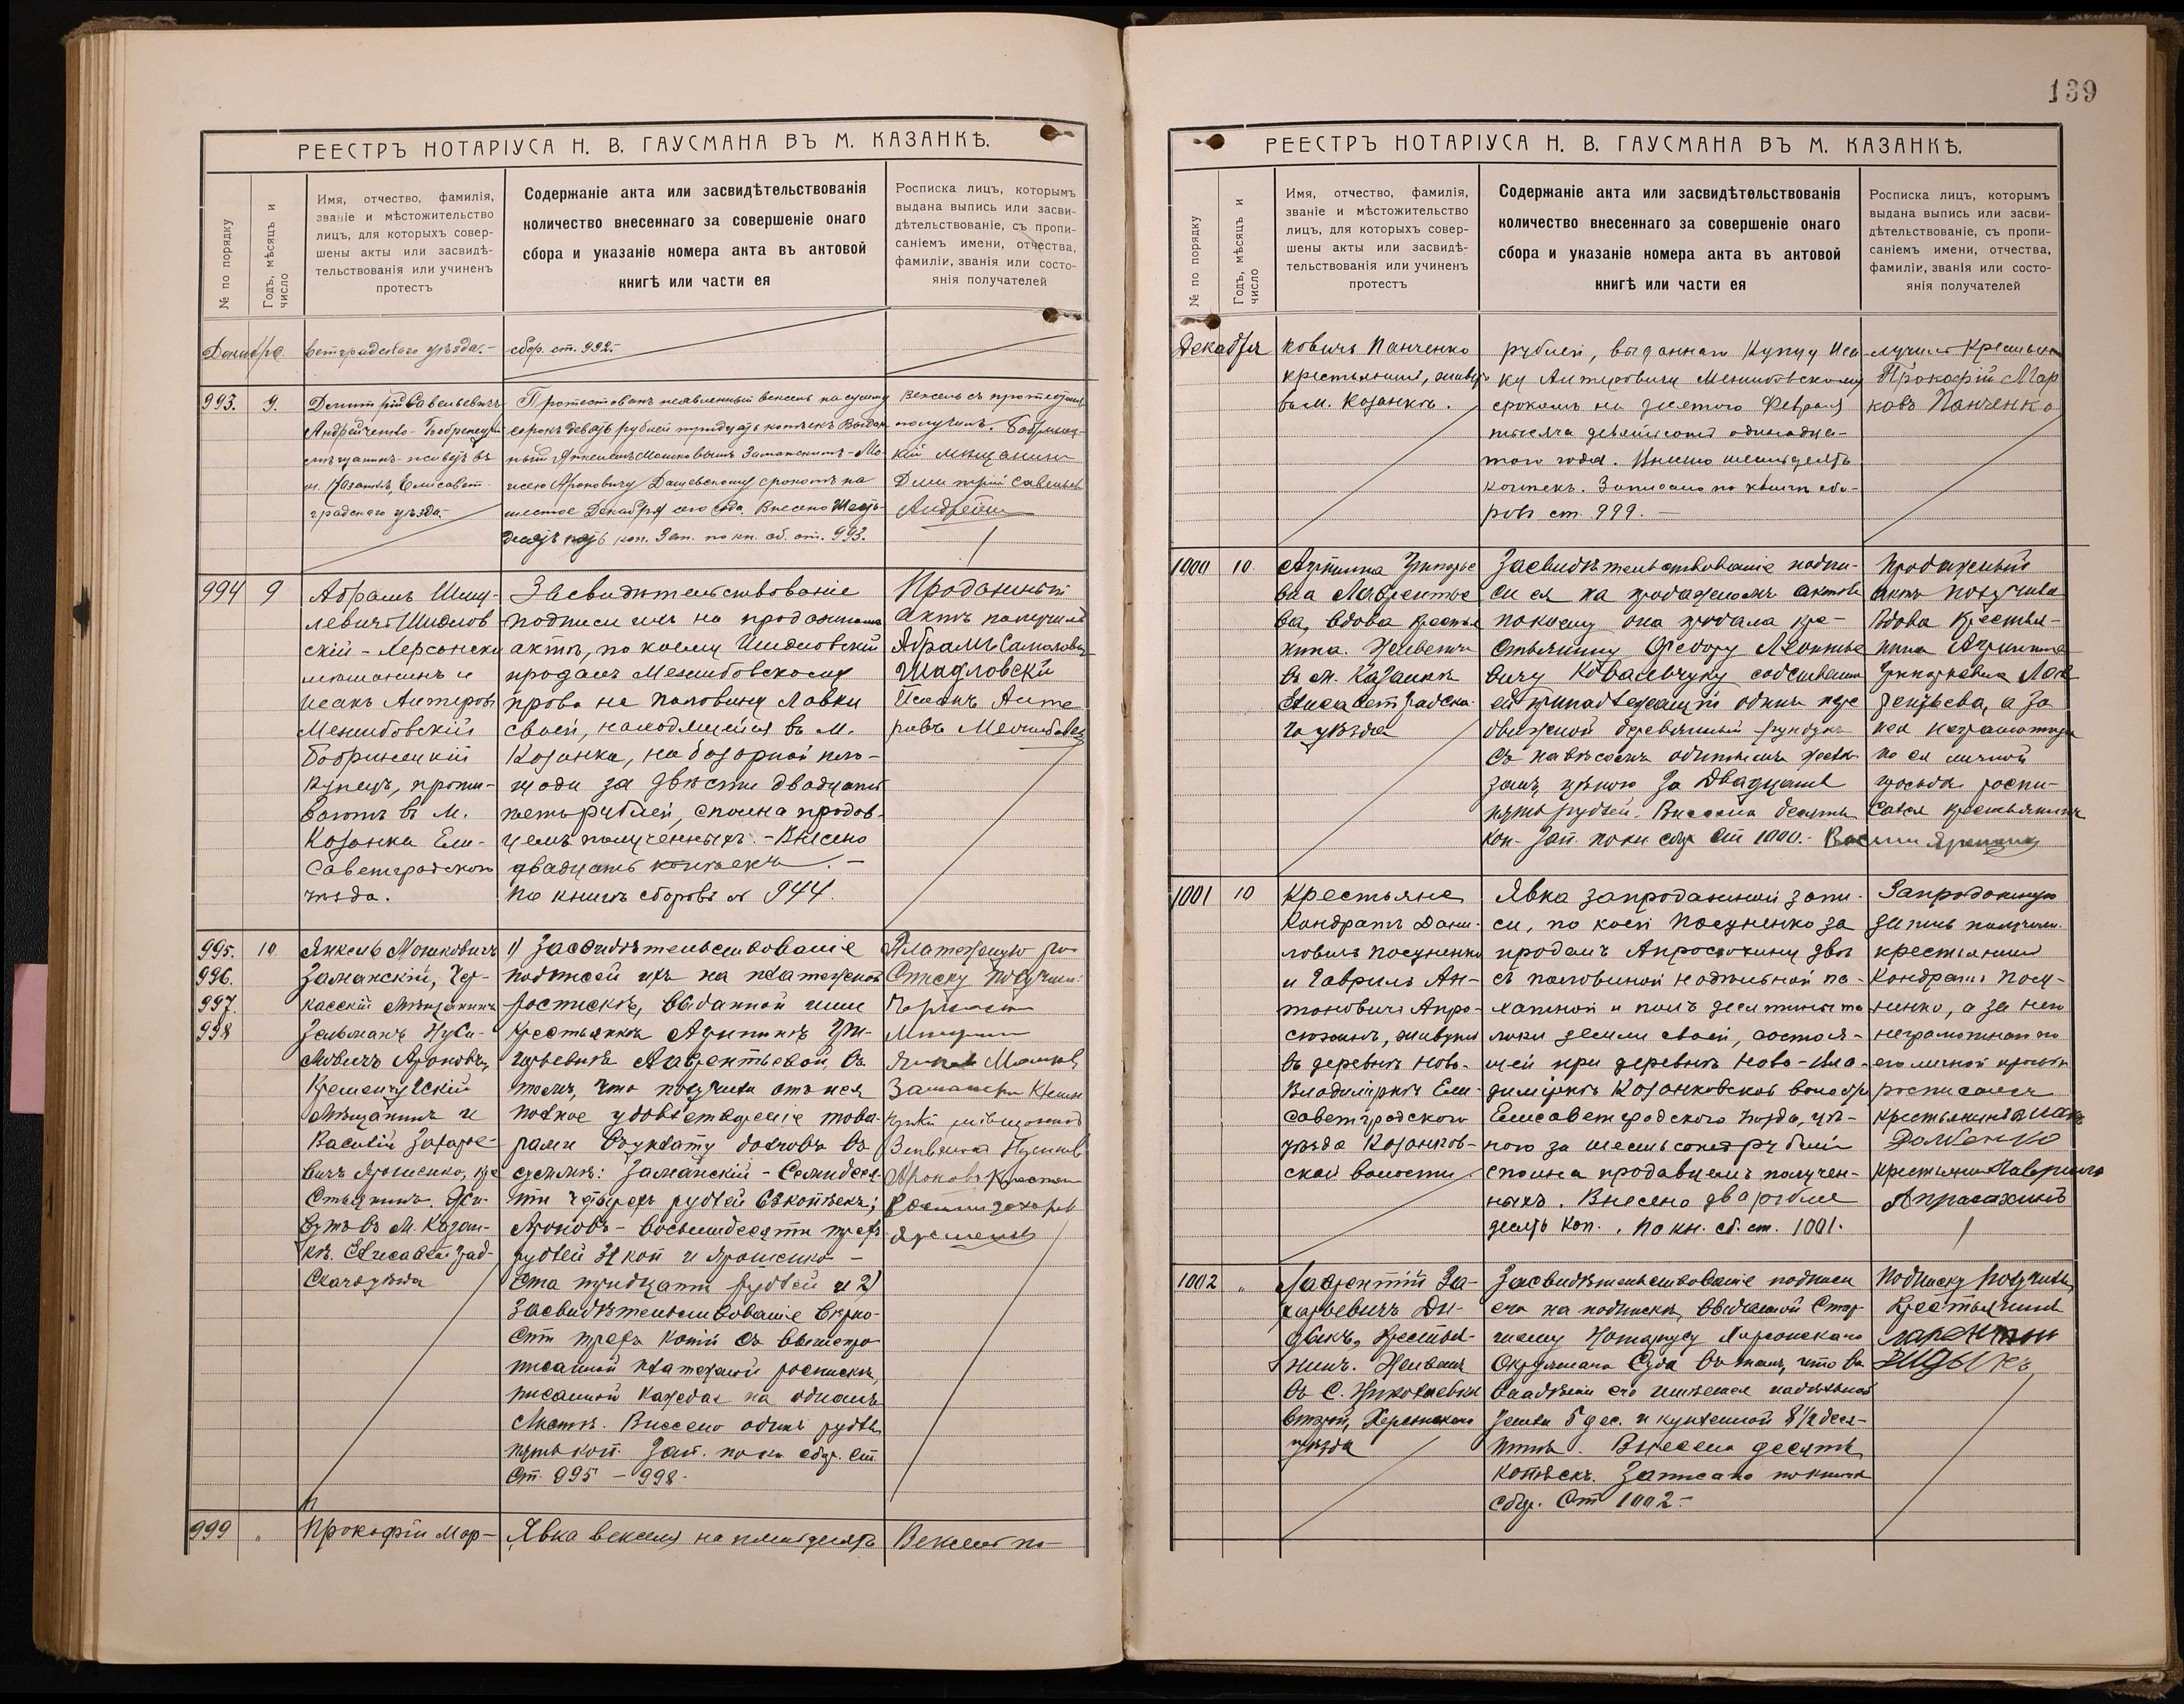 РЕЕСТРЪ НОТАРІУСА Н. В. ГАУСМАНА ВЪ М. КАЗАНКѢ.
№ по порядку
Годъ, мѣсяцъ и
число
Имя, отчество, фамилія,
званіе и мѣстожительство
лицъ, для которыхъ совер-
шены акты или засвидѣ-
тельствованія или учиненъ
протестъ
Содержаніе акта или засвидѣтельствованія
количество внесеннаго за совершеніе онаго
сбора и указаніе номера акта въ актовой
книгѣ или части ея
Росписка лицъ, которымъ
выдана выпись или засви-
дѣтельствованіе, съ пропи-
саніемъ имени, отчества,
фамиліи, званія или состо-
янія получателей
Декабря
ветградскаго уѣзда.-
сбор. ст. 992.-
993. 9.
Дмитрій Савельевичъ
Андрейченко - Бобринецкій
мѣщанинъ - живетъ въ
м. Казанкѣ, Елисавет-
градскаго уѣзда.-
Протестованъ неявленный вексель на сумму
сорокъ девять рублей тридцать копѣекъ Выдан-
ный Янкелемъ Мошковымъ Заманскимъ - Мо-
исею Ароновичу Дашевскому срокомъ на
шестое Декабря сего года. Внесено Шесть-
десятъ пять коп. Зап. по кн. сб. ст. 993.
Вексель съ протестомъ
получилъ. Бобринец-
кій мѣщанинъ
Дмитрій Савельев
994 9
Абрамъ Шму-
левичъ Шидлов
скій - Херсонскій
мѣщанинъ и
Исакъ Антеровъ
Меншбовскій
Бобринецкій
Купецъ, прожи-
ваютъ въ М.
Казанка Ели-
саветградского
уѣзда.
Засвидѣтельствованіе
подписи ихъ на продажномъ
актѣ, по коему Шидловскій
продалъ Меншбовскому
право на половину лавки
своей, находящейся въ М.
Казанка, на базарной пло-
щади за двѣсти двадцать
пять рублей, сполна продав-
цемъ полученныхъ. - Внесено
двадцать копѣекъ. -
По книгѣ сборовъ ст 944.
Продажный
актъ получилъ
Абрамъ Самолович
Шидловскй
Исакъ Анте
ровъ
995. 10
996.
997.
998
Янкель Мошковичъ
Заманскій, Чер-
касскій Мѣщанинъ
Зельманъ Нуси-
мовичъ Ароновъ,
Кременчугскій
Мѣщанинъ и
Василій Захарье-
вичъ Ярошенко, кре
стьянинъ. Жи-
вутъ въ М. Казан-
кѣ. Елисаветград-
скаго уѣзда
1) Засвидѣтельствованіе
подписей ихъ на платежной
роспискѣ, выданной ими
крестьянкѣ Агрипинѣ Гри-
горьевнѣ Лаврентьевой, въ
томъ, что получили отъ нея
полное удовлетвореніе това-
рами въ уплату долговъ въ
суммѣ: Заманскій - Семидеся-
ти четырехъ рублей 63 копѣекъ;
Ароновъ - восьмидесяти трехъ
рублей 34 коп и Ярошенко -
ста тридцати рублей и 2)
Засвидѣтельствованіе вѣрно-
сти трехъ копій съ вышепро-
писанной платежной росписки,
писанной каждая на одномъ
листѣ. Внесено одинъ рубль
пять коп. Зап. по кн сбор. ст
ст. 995 - 998.
Платежную ро-
списку получили:
Зельманъ Нусимов
Василій Захаров
999 "
Прокофій Мар-
Явка векселя на пятьдесятъ
Вексель по-
139
РЕЕСТРЪ НОТАРІУСА Н. В. ГАУСМАНА ВЪ М. КАЗАНКѢ.
№ по порядку
Годъ, мѣсяцъ и
число
Имя, отчество, фамилія,
званіе и мѣстожительство
лицъ, для которыхъ совер-
шены акты или засвидѣ-
тельствованія или учиненъ
протестъ
Содержаніе акта или засвидѣтельствованія
количество внесеннаго за совершеніе онаго
сбора и указаніе номера акта въ актовой
книгѣ или части ея
Росписка лицъ, которымъ
выдана выпись или засви-
дѣтельствованіе, съ пропи-
саніемъ имени, отчества,
фамиліи, званія или состо-
янія получателей
Декабря
ковичъ Панченко
крестьянинъ, живетъ
въ м. Казанкѣ.
рублей, выданнаго Купцу Иса
ку Антеровичу Меншбовскому
срокомъ на десятого Февраля
тысяча девятьсотъ одинадца-
того года. Внесено шестьдесятъ
копѣекъ. Записано по книгѣ сбо-
ровъ ст. 999. -
лучилъ Крестьян
Прокофій Мар
ковъ Панченко
1000 10
Агрипина Григорье
вна Лаврентье
ва, вдова крестья
нина. Живетъ
въ м. Казанкѣ
Елисаветградска-
го уѣзда
Засвидѣтельствованіе подпи-
си ея на продажномъ актѣ
по коему она продала кре-
стьянину Федору Леонтье
вичу Ковальчуку собственно
ей принадлежащій одинъ пере
движной деревянный рундукъ
съ навѣсомъ обитымъ желѣ-
зомъ, цѣною за Двадцать
пять рублей. Внесено десять
коп. Зап. по кн сбор ст 1000.-
Продажный
актъ получила
Вдова Крестья-
нина Агрипина
Григорьевна Лав
рентьева, а за
нея неграмотную
по ея личной
просьбѣ роспи-
сался крестьянинъ
1001 10
Крестьяне
Кондратъ Дани-
ловичъ Посуненко
и Гаврилъ Ан-
тоновичъ Апро-
сюхинъ, живущіе
въ деревнѣ Ново-
Владиміркѣ Ели-
саветградского
уѣзда Казанков-
ской волости
Явка запродажной запи-
си, по коей Посуненко за
продалъ Апросюхину дво
съ половиной надѣльной па-
хатной и полъ десятины то
локи земли своей, состоя-
щей при деревнѣ Ново-Вла-
диміркѣ Казанковской волости
Елисаветградского уѣзда, цѣ-
ною за шестьсотъ рублей
сполна продавцемъ получен-
ныхъ. Внесено два рубля
десять коп. . По кн. сб. ст. 1001.
Запродажную
запись получили
крестьянинъ
Кондратъ Посу-
ненко, а за него
неграмотнаго по
его личной просьбѣ
росписался
крестьянинъ
Долбенко
крестьянинъ Гаврило
Апрасюхинъ
1002 "
Лаврентій За-
харьевичъ Ди-
дыкъ, крестья-
нинъ. Живетъ
въ С. Николаевкѣ
второй, Херсонскаго
уѣзда
Засвидѣтельствованіе подписи
его на подпискѣ, выданной Стар-
шему Нотаріусу Херсонскаго
Окружнаго Суда въ томъ, что во
владѣніи его имѣется надѣльной
земли 5 дес. и купленной 8 1/2 деся-
тинъ. Внесено десять
копѣекъ. Записано по книгѣ
сбор. ст 1002.-
Подписку получилъ
Крестьянинъ
Дидыкъ